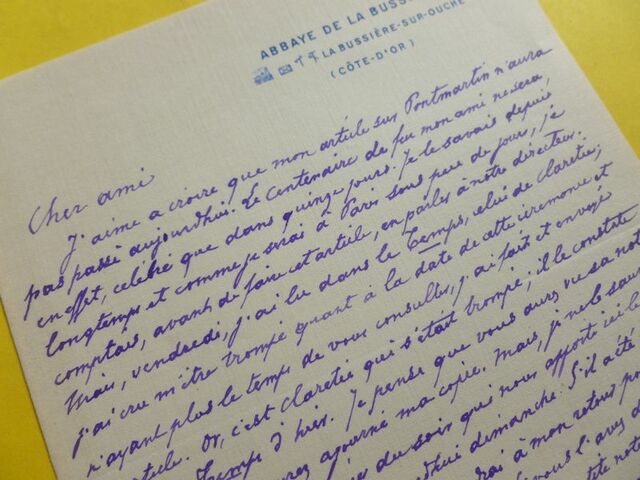 ABBAYE DE LA BUSSI
LA BUSSIÈRE-SUR-OUCHE
(CÔTE-D'OR)
Cher ami
J'aime a croire que mon article sur Pontmartin n'aura
pas passé aujourd'hui. Le Centenaire de feu mon ami ne sera,
en effet, célébré que dans quinze jours. Je le savais depuis
longtemps et comme je serai à Paris sous peu de jours, je
comptais, avant de faire cet article, en parler à notre directeur.
Mais, vendredi, j'ai lu dans le Temps, celui de Claretie;
j'ai cru m'être trompé quant à la date de cette cérémonie et
n'ayant plus le temps de vous consulter, j'ai fait et envoyé
article. Or, c'est Claretie qui s'était trompé; il le constate
Temps d'hier. Je pense que vous aurez vu sa note
ajourné ma copie. Mais, je ne le sau
du soir qui nous apporte ici le
dimanche. S'il a été
à mon retour pou
vous l'avez d
note